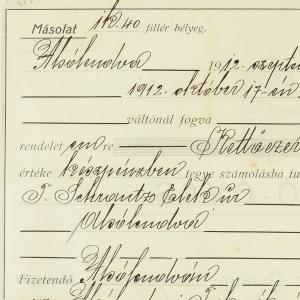 Másolat ik. 40 fillér bélyeg.
Alsólendva 1912. szeptu
1912. október 17-én
váltónál fogva
rendelet em re Kettőezer
értéke készpénzben tegye számolásba tu
T. Schrantz Elek úr
Alsólendva
Fizetendő Alsólendván